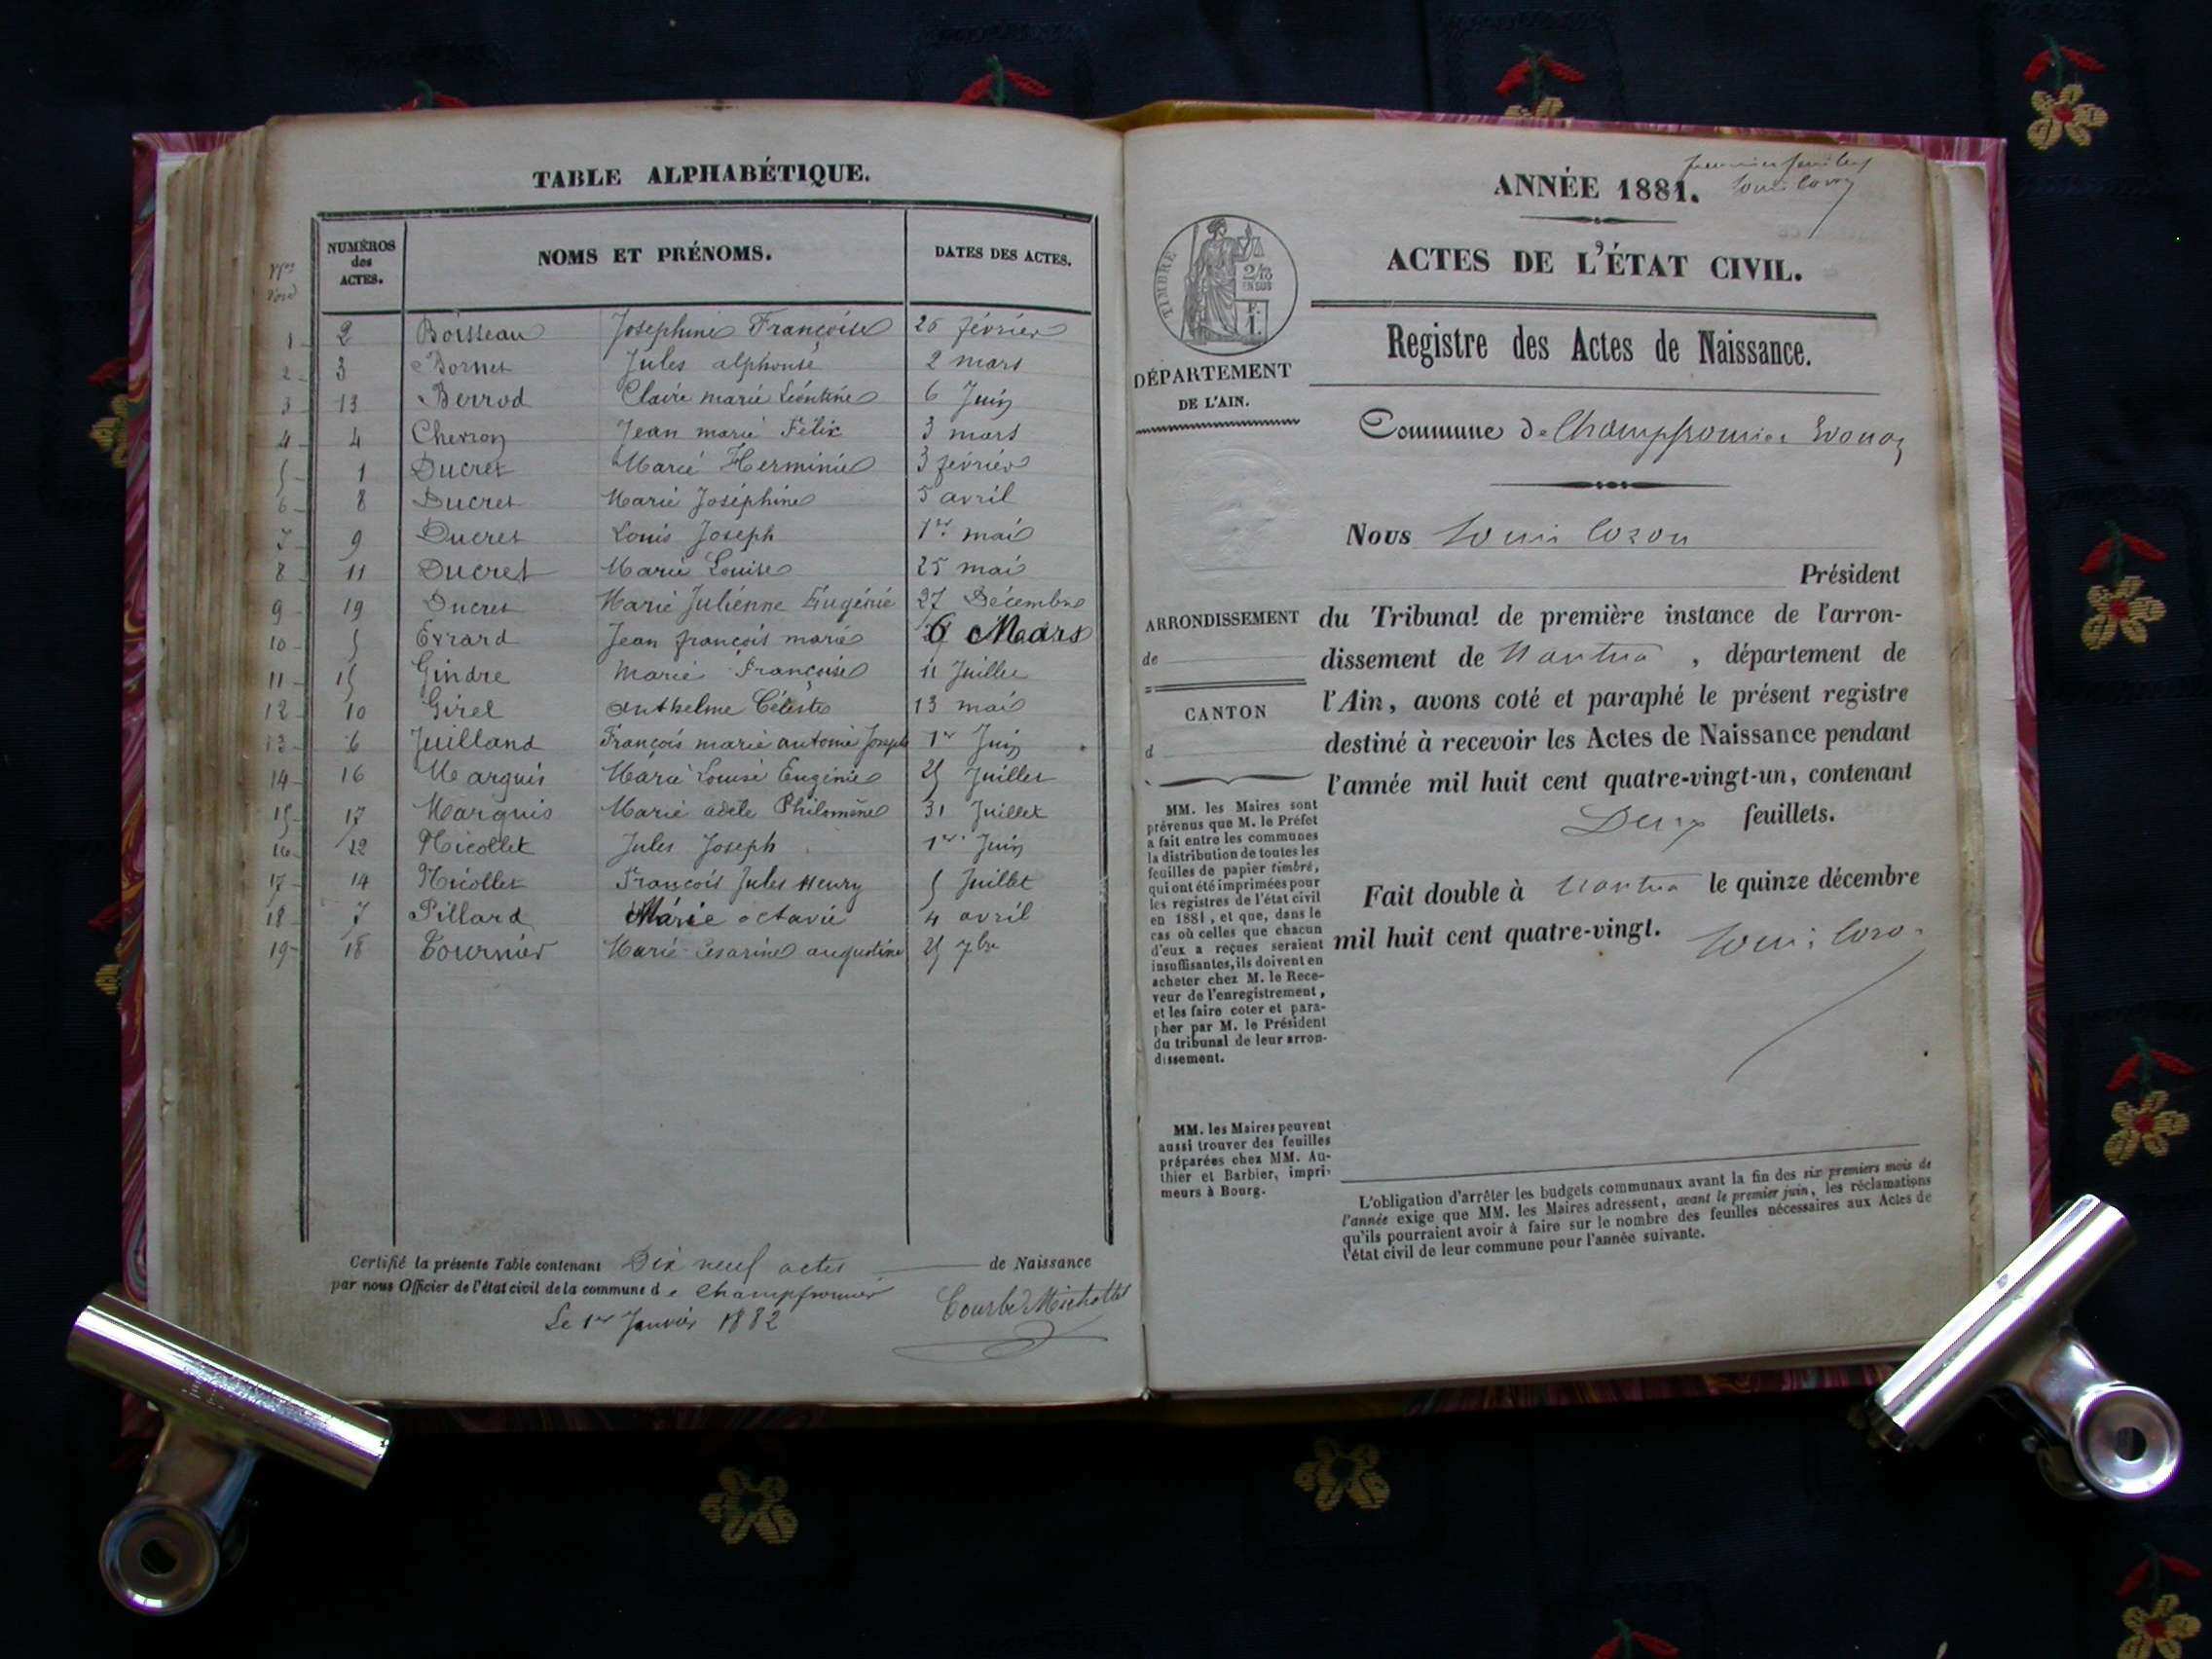 TABLE ALPHABÉTIQUE.
NUMÉROS des ACTES. NOMS ET PRÉNOMS. DATES DES ACTES.
1 2 Boisseau Josephine Françoise 26 février
2 3 Bornet Jules alphonse 2 mars
3 13 Berrod Claire marie Léontine 6 Juin
4 4 Chevron Jean marie Félix 3 mars
5 1 Ducret Marie Herminie 3 février
6 8 Ducret Marie Joséphine 5 avril
7 9 Ducret Louis Joseph 1er mai
8 11 Ducret Marie Louise 25 mai
9 19 Ducret Marie Julienne Eugénie 27 Décembre
10 5 Evrard Jean françois marie 6 Mars
11 15 Gindre Marie Françoise 11 Juillet
12 10 Girel Anthelme Céleste 13 mai
13 6 Juilland François marie antoine Joseph 1er Juin
14 16 Marquis Marie Louise Eugénie 25 Juillet
15 17 Marquis Marie adèle Philomène 31 Juillet
16 12 Nicollet Jules Joseph 1er Juin
17 14 Nicollet François Jules Henry 5 Juillet
18 7 Pillard Marie octavie 4 avril
19 18 Tournier Marie Césarine augustine 25 7bre
Certifié la présente Table contenant Dix neuf actes de Naissance
par nous Officier de l'état civil de la commune de Champfromier
Le 1er Janvier 1882
ANNÉE 1881.
ACTES DE L'ÉTAT CIVIL.
TIMBRE
2/10
EN SUS
F.
1.
DÉPARTEMENT
DE L'AIN.
Registre des Actes de Naissance.
Commune de Champfromier
Nous Louis Cozon
Président
ARRONDISSEMENT
de
CANTON
d
du Tribunal de première instance de l'arron-
dissement de Nantua, département de
l'Ain, avons coté et paraphé le présent registre
destiné à recevoir les Actes de Naissance pendant
l'année mil huit cent quatre-vingt-un, contenant
Deux feuillets.
Fait double à Nantua le quinze décembre
mil huit cent quatre-vingt.
Louis Cozon
MM. les Maires sont
prévenus que M. le Préfet
a fait entre les communes
la distribution de toutes les
feuilles de papier timbré,
qui ont été imprimées pour
les registres de l'état civil
en 1881, et que, dans le
cas où celles que chacun
d'eux a reçues seraient
insuffisantes, ils doivent en
acheter chez M. le Rece-
veur de l'enregistrement,
et les faire coter et para-
pher par M. le Président
du tribunal de leur arron-
dissement.
MM. les Maires peuvent
aussi trouver des feuilles
préparées chez MM. Au-
thier et Barbier, impri-
meurs à Bourg.
L'obligation d'arrêter les budgets communaux avant la fin des six premiers mois de
l'année exige que MM. les Maires adressent, avant le premier juin, les réclamations
qu'ils pourraient avoir à faire sur le nombre des feuilles nécessaires aux Actes de
l'état civil de leur commune pour l'année suivante.